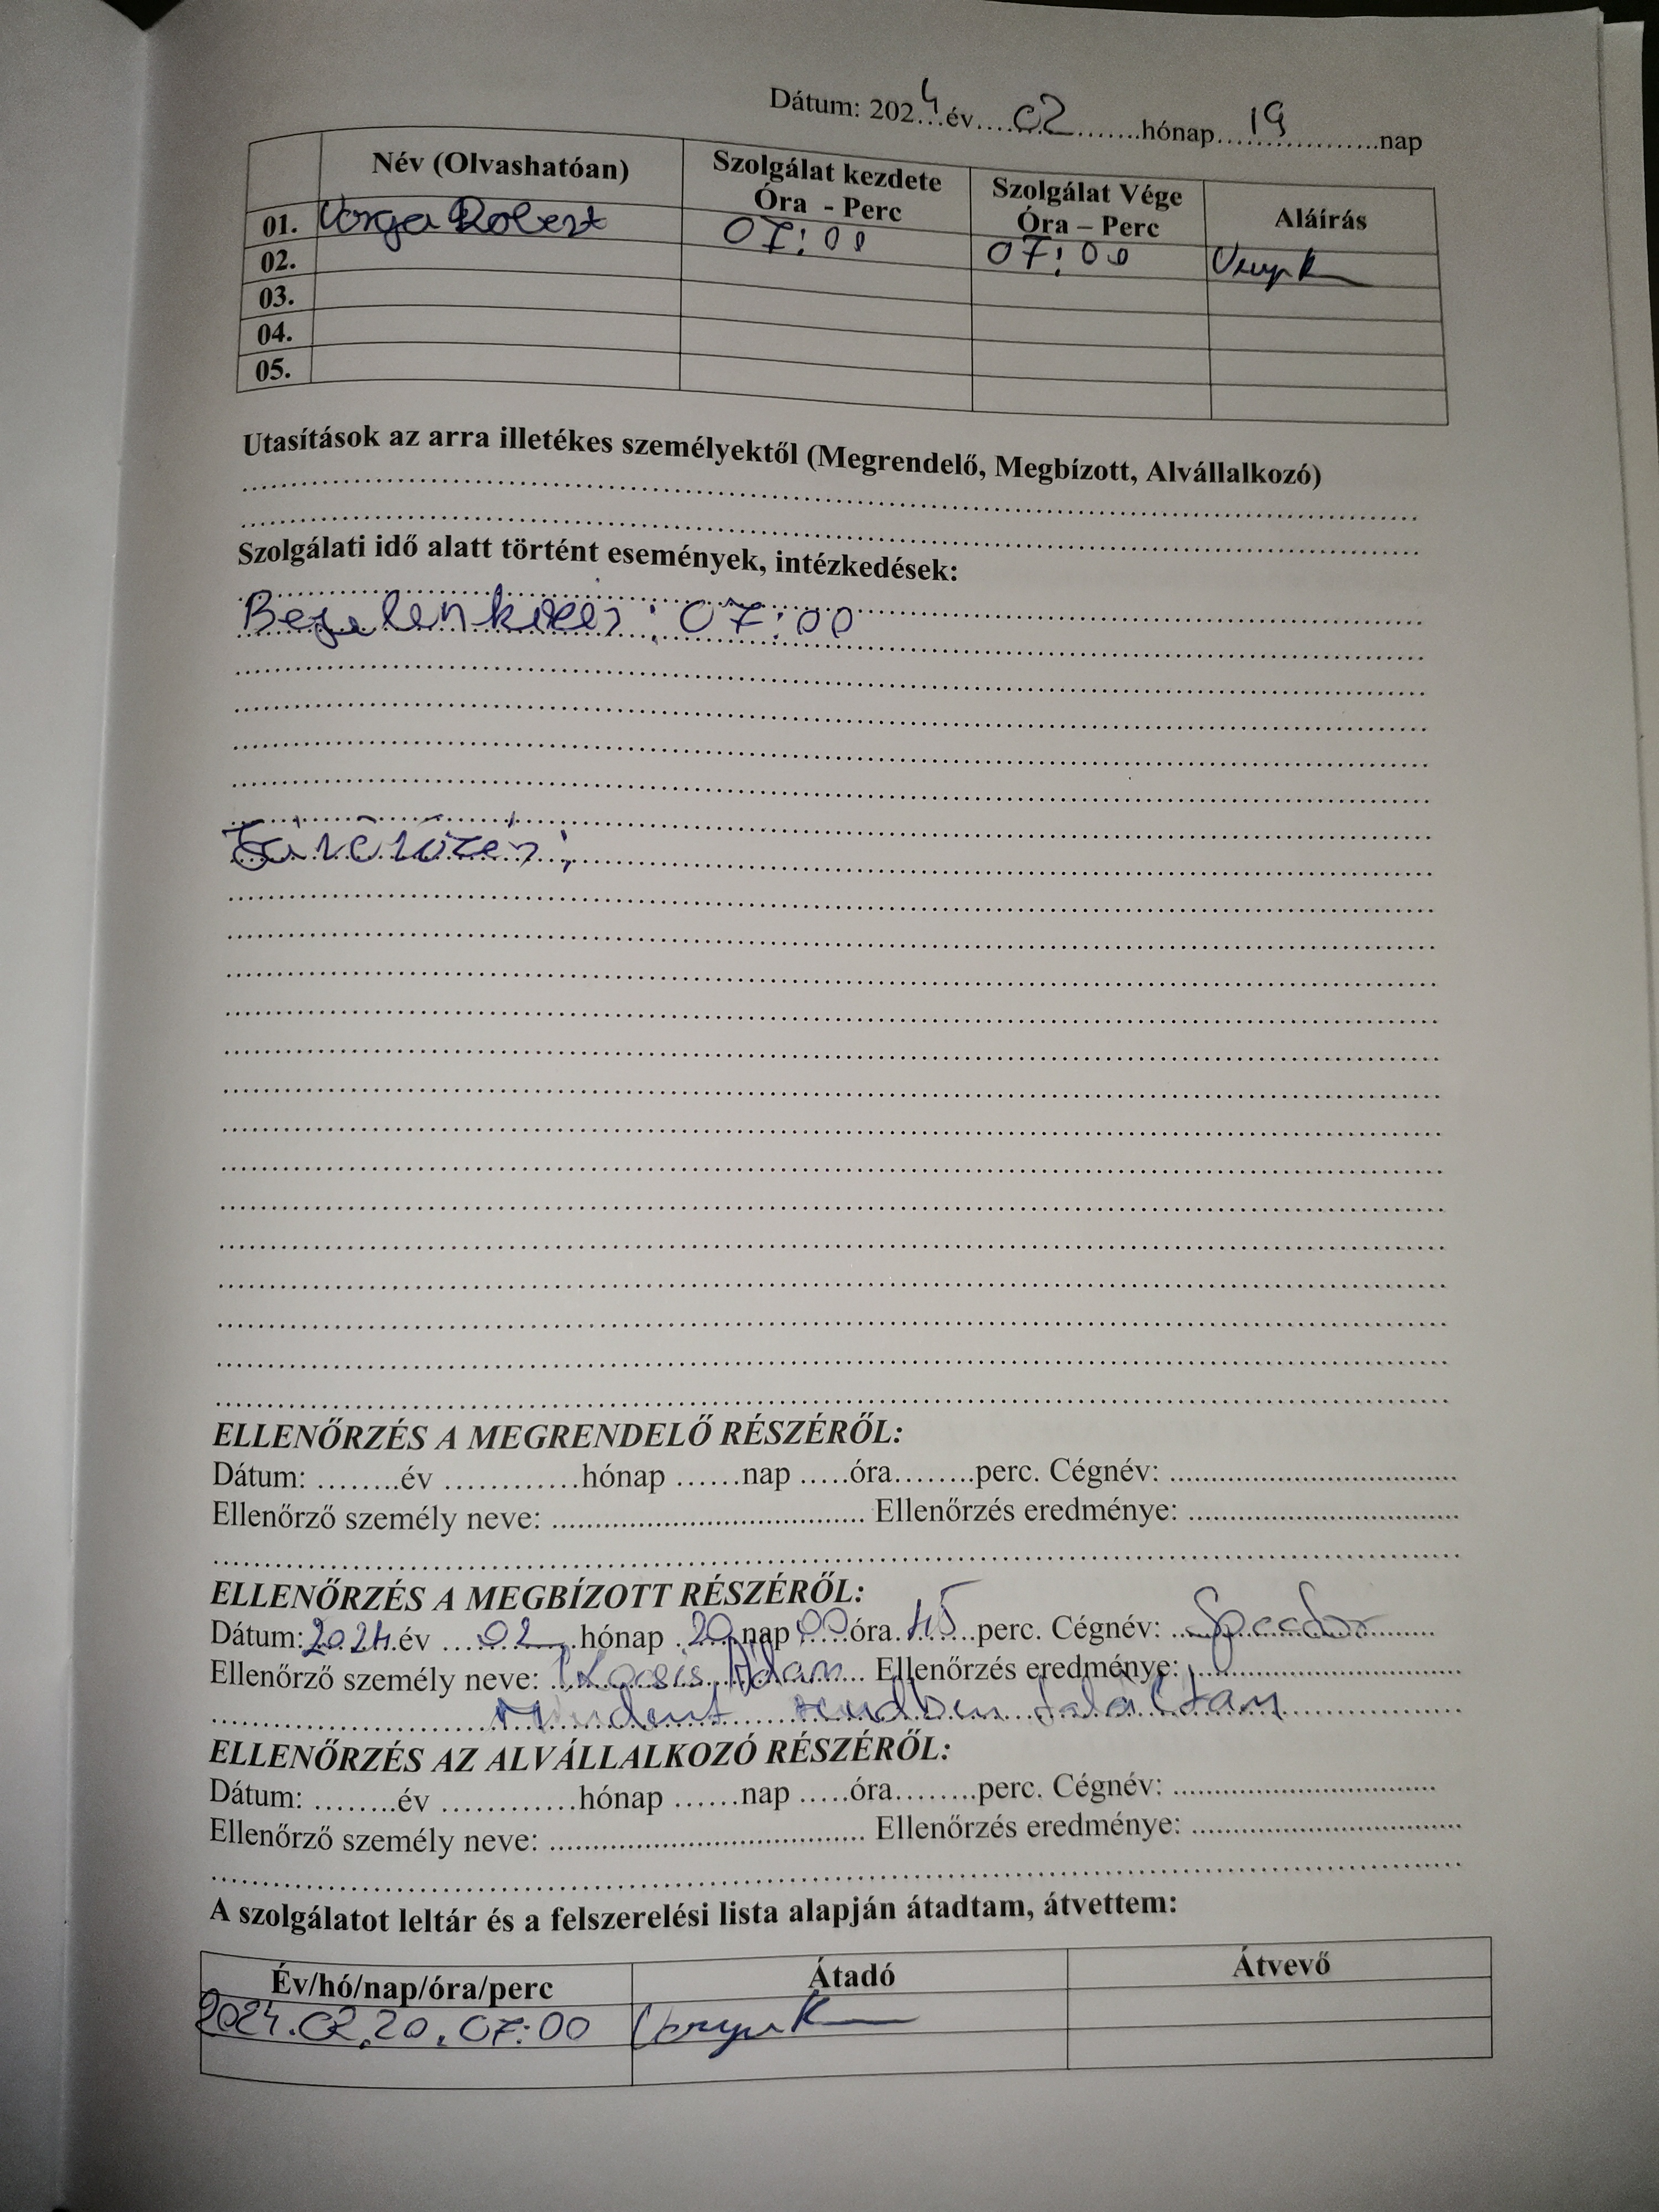 Dátum: 2024 év 02 hónap 19 nap
Név (Olvashatóan) Szolgálat kezdete Óra - Perc Szolgálat Vége Óra – Perc Aláírás
01. Varga Robert 07:00 07:00
02.
03.
04.
05.
Utasítások az arra illetékes személyektől (Megrendelő, Megbízott, Alvállalkozó)
Szolgálati idő alatt történt események, intézkedések:
Bejelenkezés: 07:00
ELLENŐRZÉS A MEGRENDELŐ RÉSZÉRŐL:
Dátum: ........év ............hónap ......nap .....óra........perc. Cégnév: ..........
Ellenőrző személy neve: .......... Ellenőrzés eredménye: ..........
ELLENŐRZÉS A MEGBÍZOTT RÉSZÉRŐL:
Dátum: 2024 év 02 hónap 20 nap 00 óra 45 perc. Cégnév:
Ellenőrző személy neve: Kocsis Ádám Ellenőrzés eredménye:
Mindent rendben találtam
ELLENŐRZÉS AZ ALVÁLLALKOZÓ RÉSZÉRŐL:
Dátum: ........év ............hónap ......nap .....óra........perc. Cégnév: ..........
Ellenőrző személy neve: .......... Ellenőrzés eredménye: ..........
A szolgálatot leltár és a felszerelési lista alapján átadtam, átvettem:
Év/hó/nap/óra/perc Átadó Átvevő
2024.02.20. 07:00